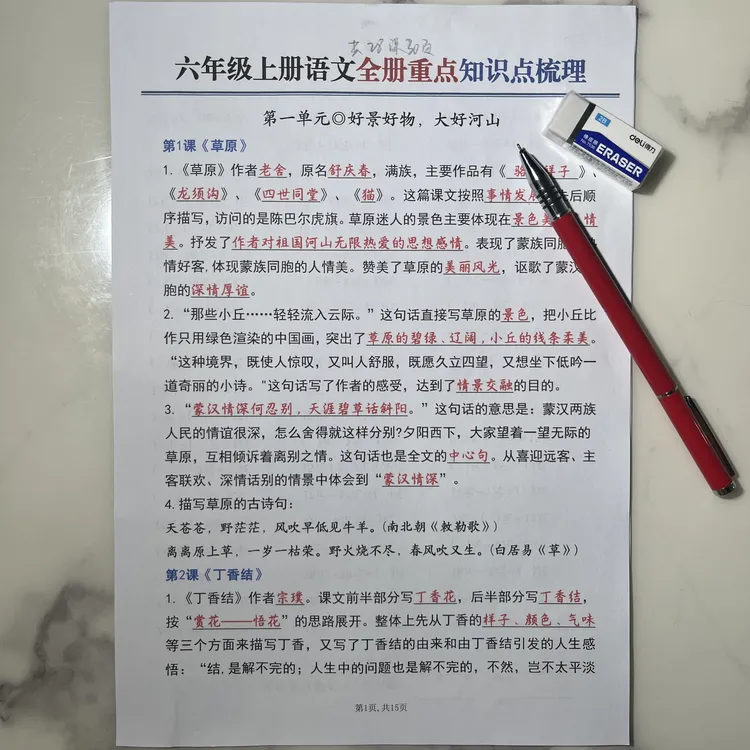 六年级上册语文全册重点知识点梳理
第一单元◎好景好物，大好河山
第1课《草原》
1.《草原》作者老舍，原名舒庆春，满族，主要作品有《骆 祥子》、
《龙须沟》、《四世同堂》、《猫》。这篇课文按照事情发展 先后顺
序描写，访问的是陈巴尔虎旗。草原迷人的景色主要体现在景色美 情
美。抒发了作者对祖国河山无限热爱的思想感情。表现了蒙族同胞
情好客,体现蒙族同胞的人情美。赞美了草原的美丽风光，讴歌了蒙汉
胞的深情厚谊。
2.“那些小丘……轻轻流入云际。”这句话直接写草原的景色，把小丘比
作只用绿色渲染的中国画，突出了草原的碧绿、辽阔,小丘的线条柔美。
“这种境界，既使人惊叹，又叫人舒服，既愿久立四望，又想坐下低吟一
道奇丽的小诗。"这句话写了作者的感受，达到了情景交融的目的。
3.“蒙汉情深何忍别，天涯碧草话斜阳。”这句话的意思是：蒙汉两族
人民的情谊很深，怎么舍得就这样分别?夕阳西下，大家望着一望无际的
草原，互相倾诉着离别之情。这句话也是全文的中心句。从喜迎远客、主
客联欢、深情话别的情景中体会到“蒙汉情深”。
4.描写草原的古诗句：
天苍苍，野茫茫，风吹草低见牛羊。(南北朝《敕勒歌》)
离离原上草，一岁一枯荣。野火烧不尽，春风吹又生。(白居易《草》)
第2课《丁香结》
1.《丁香结》作者宗璞。课文前半部分写丁香花，后半部分写丁香结，
按“赏花——悟花”的思路展开。整体上先从丁香的样子、颜色、气味
等三个方面来描写丁香，又写了丁香结的由来和由丁香结引发的人生感
悟：“结,是解不完的；人生中的问题也是解不完的，不然，岂不太平淡
第1页,共15页
deli得力
2B
ERASER